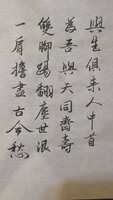 與生俱来人中首
為吾與天同齊壽
雙腳踢翻塵世浪
一肩擔盡古今愁